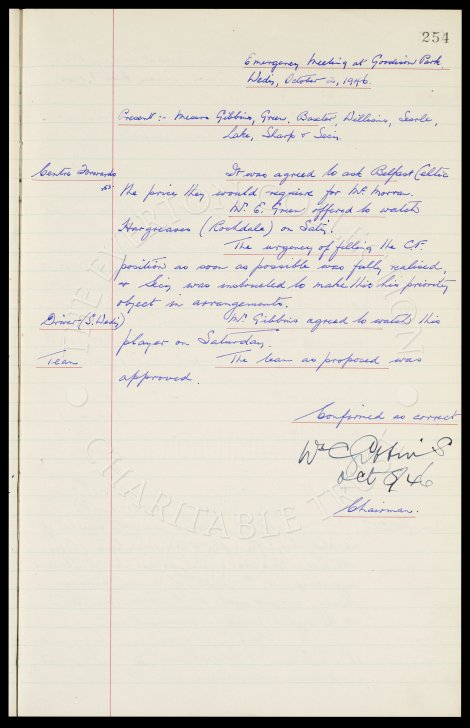 254
Emergency Meeting at Goodison Park,
Wedy, October 2, 1946.
Present :- Messrs Gibbins, Green, Baxter, Williams, Searle,
Lake, Sharp & Secy.
Centre Forwards It was agreed to ask Belfast Celtic
the price they would require for McMorran.
Mr. E. Green offered to watch
Hargreaves (Rochdale) on Saty.
The urgency of filling the C.F.
position as soon as possible was fully realised,
& Secy was instructed to make this his priority
object in arrangements.
Driver (S. Wedy) Mr Gibbins agreed to watch this
player on Saturday.
Team The team as proposed was
approved.
Confirmed as correct
Wm C Gibbins
Oct 8/46
Chairman.
THE EVERTON COLLECTION
CHARITABLE TRUST